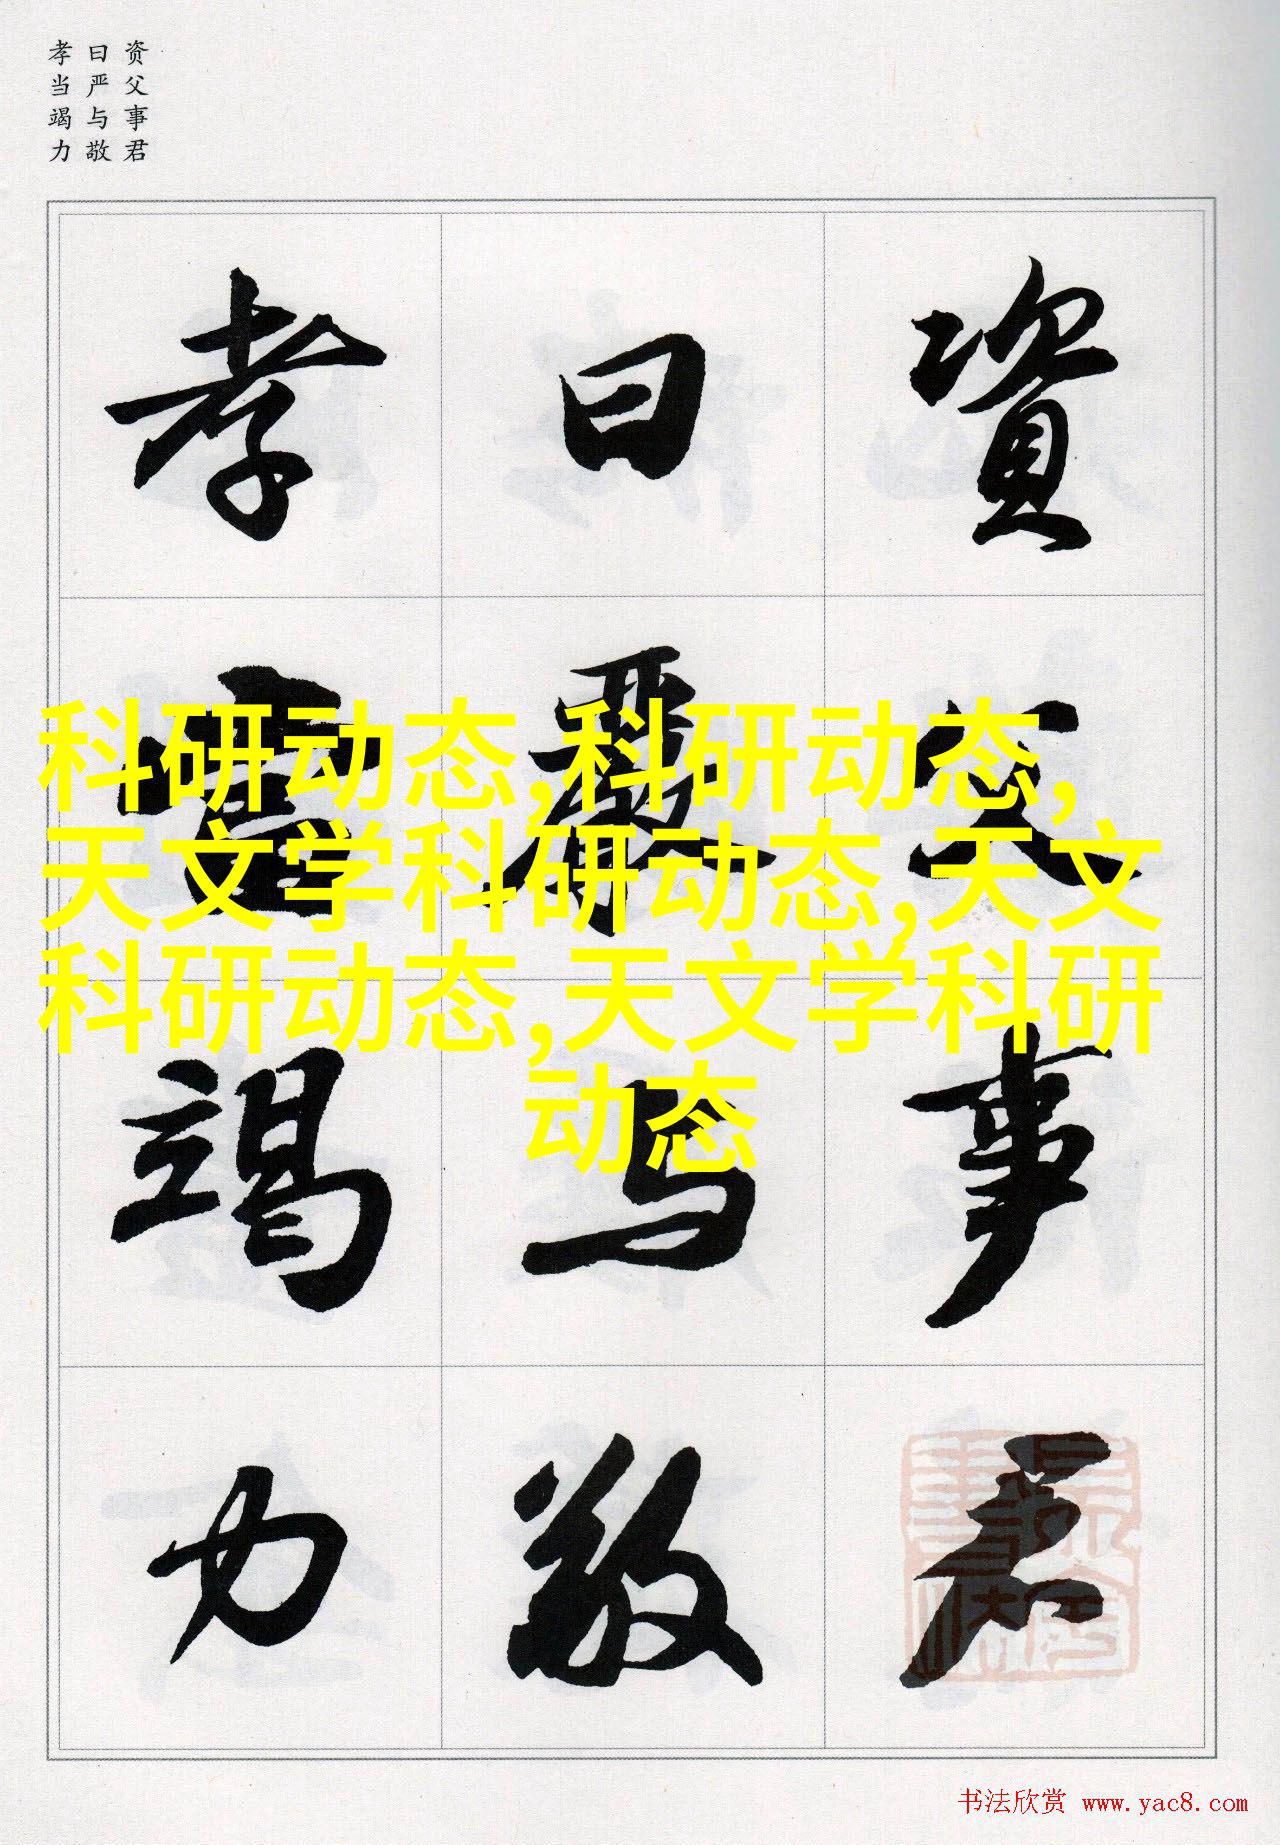 资父事君
曰严与敬
孝当竭力
資父事君
曰嚴与敬
孝當竭力
科研动态,科研动态,
天文学科研动态,天文
科研动态,天文学科研
动态
书法欣赏 www.yac8.com